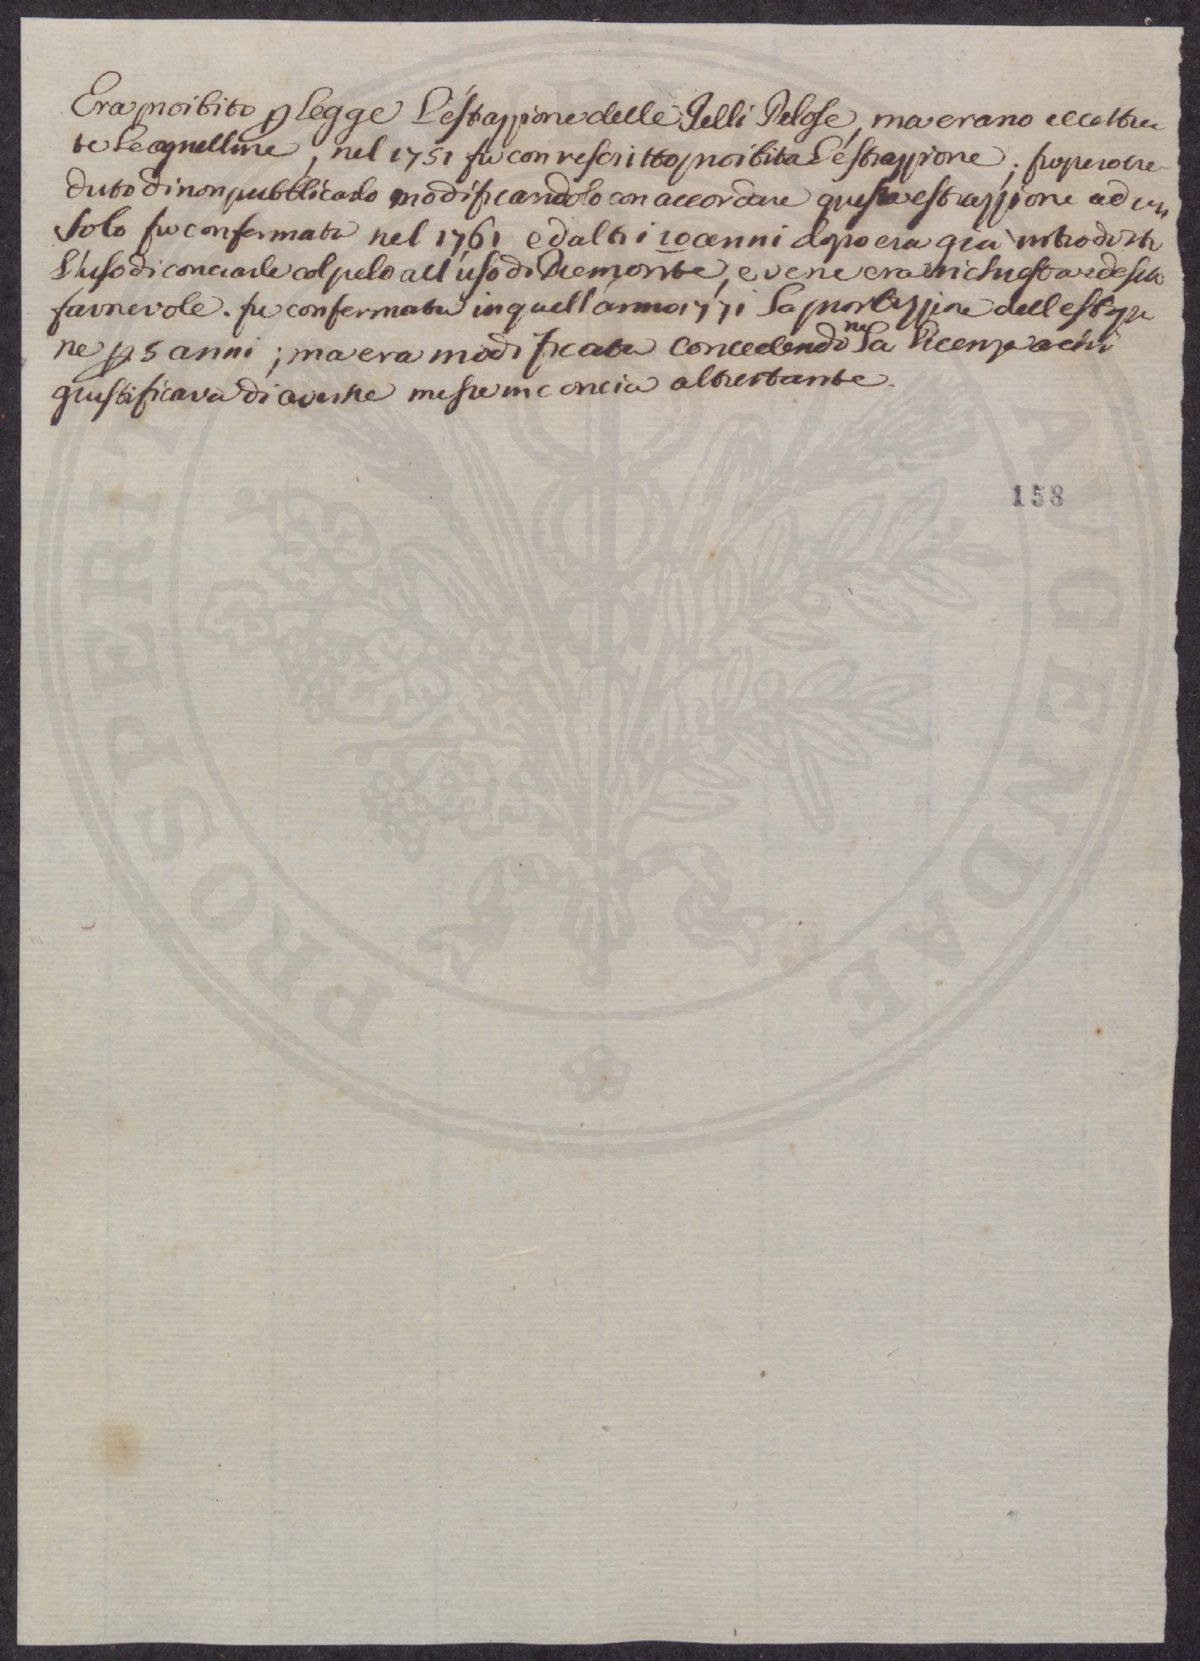 Era proibito p legge L'estrazzione delle Pelli Pelose, ma erano eccettua
te Le agnelline, nel 1751 fu con rescritto proibita L'estrazzione, fu però cre
duto di non pubblicarlo modificandolo con accordare questa estrazzione ad un
solo fu confermata nel 1761 e d'altri 10 anni dopo era già introdotto
L'uso di conciarle col pelo all'uso di Piemonte, e vene era richiesta e
favorevole. fu confermata in quell'anno 1771 La proibizzione dell'estrazzio
ne p 5 anni; ma era modificata concedendo ne La Licenza a chi
giustificava di averne messe in concia altrettante.
158
PROSPERIT AUGENDAE